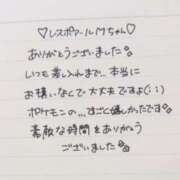 ♡レスポワールMちゃん♡
ありがとうございました
いつも差し入れまで…本当に
お構いなくで大丈夫ですよ(;;)
ポケモンの…すごく嬉しかったです
素敵な時間をありがとう
ございました